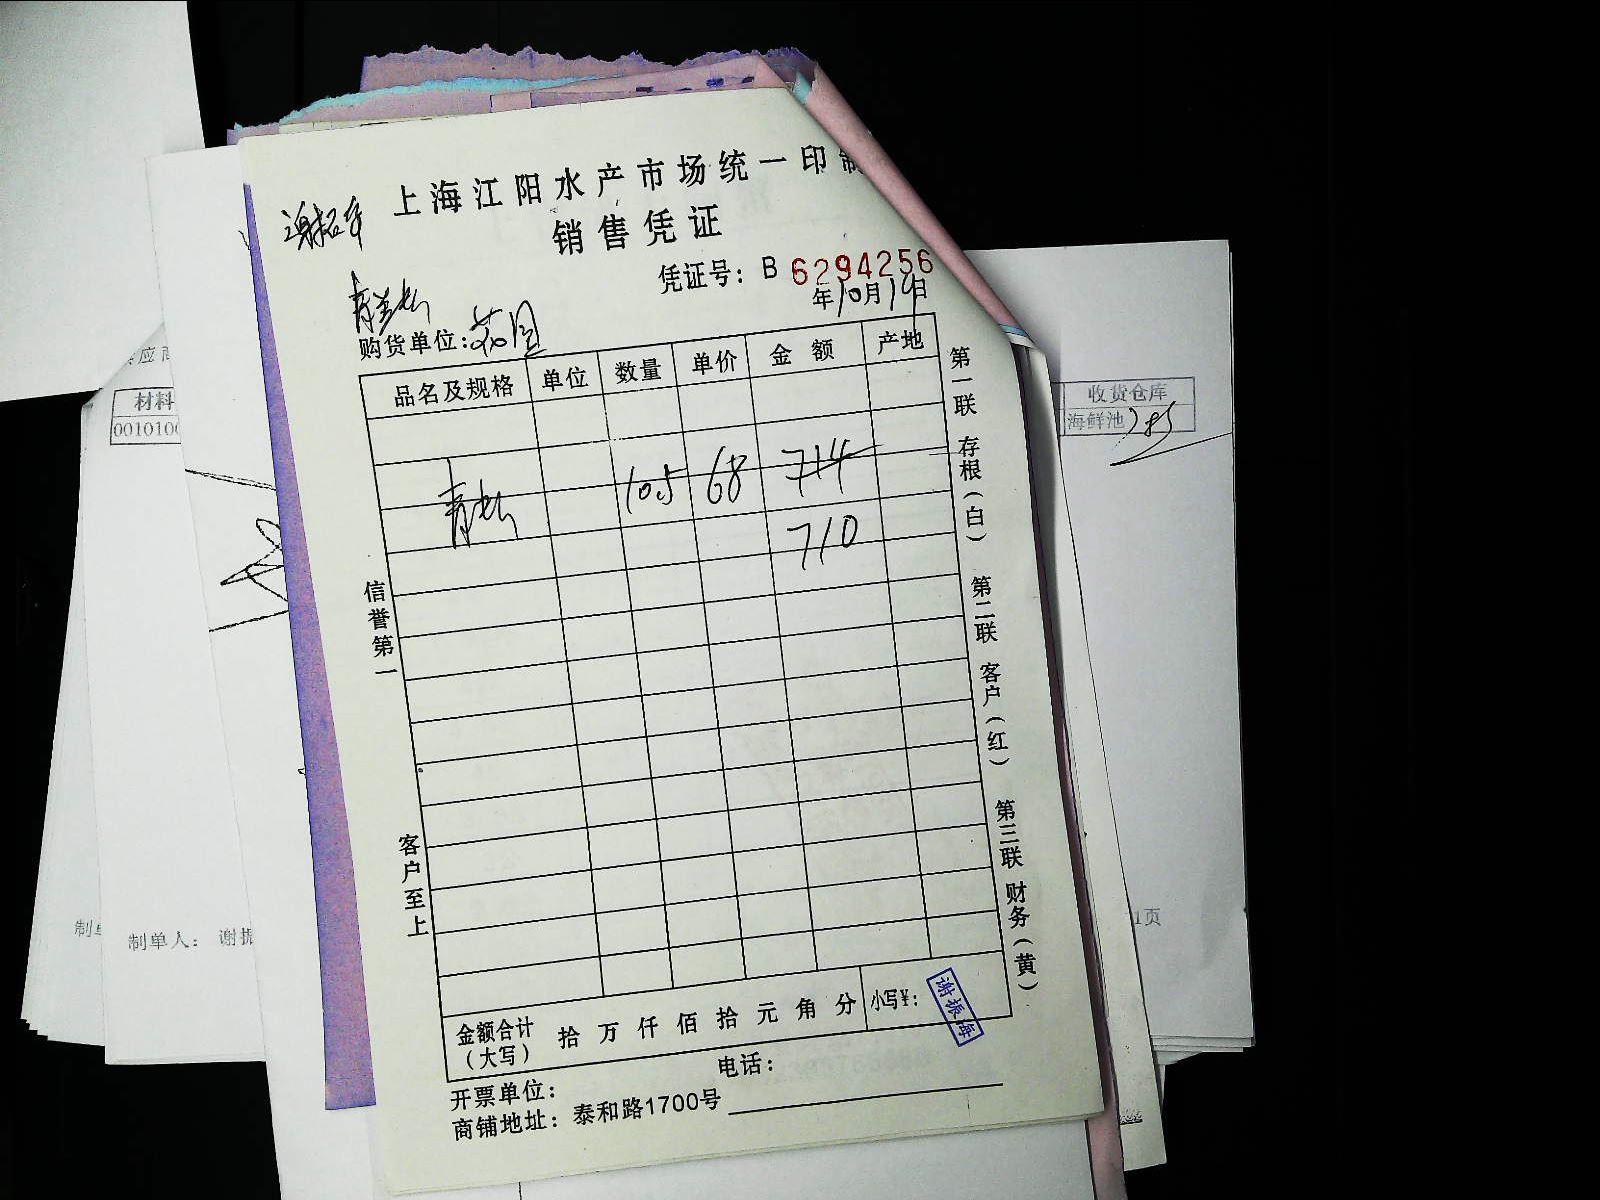 上海江阳水产市场统一印制
销售凭证
凭证号：B 6294256
年10月19日
购货单位：
品名及规格 单位 数量 单价 金额 产地
10.5 68 714
710
信誉第一
客户至上
第一联 存根（白） 第二联 客户（红） 第三联 财务（黄）
金额合计（大写） 拾 万 仟 佰 拾 元 角 分 小写¥：
谢振海
电话：
开票单位：
商铺地址：泰和路1700号
应商
材料
001010
制单人： 谢振
收货仓库
海鲜池
1页